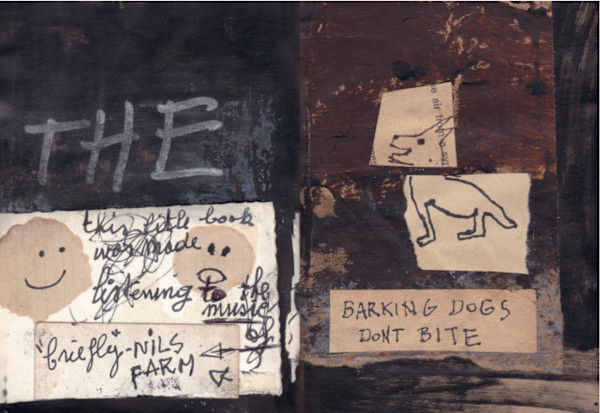 THE
this little book
was made
listening to the
music
of
"briefly" - NILS
FARM
BARKING DOGS
DONT BITE